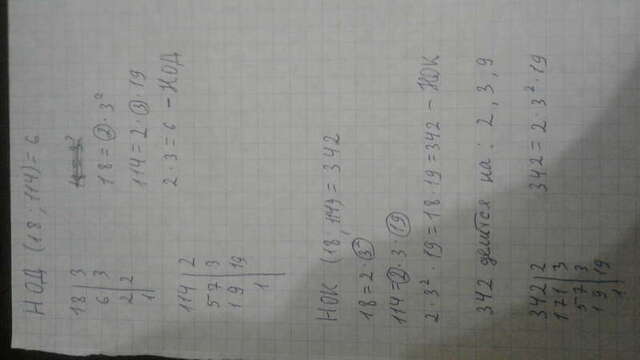 НОД (18; 114) = 6
18 | 3
6 | 3
2 | 2
1 |
18 = 2 · 3²
114 = 2 · 3 · 19
2 · 3 = 6 – НОД
114 | 2
57 | 3
19 | 19
1 |
НОК (18, 114) = 342
18 = 2 · 3²
114 = 2 · 3 · 19
2 · 3² · 19 = 18 · 19 = 342 – НОК
342 делится на: 2, 3, 9
342 | 2
171 | 3
57 | 3
19 | 19
1 |
342 = 2 · 3² · 19